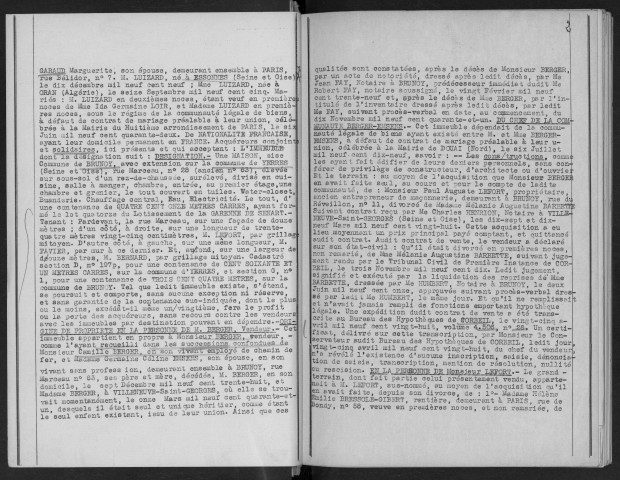 GARAUD Marguerite, son épouse, demeurant ensemble à PARIS,
rue Bélidor, n° 7. M. LUIZARD, né à ESSONNES (Seine et Oise)
le dix décembre mil neuf cent neuf ; Mme LUIZARD, née à
ORAN (Algérie), le seize Septembre mil neuf cent cinq. Ma-
riés : M. LUIZARD en deuxièmes noces, étant veuf en premières
noces de Mme Ida Germaine LOIR, et Madame LUIZARD en premiè-
res noces, sous le régime de la communauté légale de biens,
à défaut de contrat de mariage préalable à leur union, célé-
brée à la Mairie du Huitième arrondissement de PARIS, le six
Juin mil neuf cent quarante-deux. De NATIONALITE FRANCAISE,
ayant leur domicile permanent en FRANCE. Acquéreurs conjoints
et solidaires, ici présents et qui acceptent : L'IMMEUBLE
dont la désignation suit : DESIGNATION.- Une MAISON, sise
Commune de BRUNOY, avec extension sur la commune de YERRES
(Seine et Oise), rue Marceau, n° 28 (ancien n° 83), élevée
sur sous-sol d'un rez-de-chaussée, surélevé, divisé en cui-
sine, salle à manger, chambre, entrée, au premier étage, une
chambre et grenier, le tout couvert en tuiles. Water-closet,
Buanderie. Chauffage central, Eau, Electricité. Le tout, d'
une contenance de QUATRE CENT ONZE METRES CARRES, ayant for-
mé le lot quatorze du Lotissement de la GARENNE DE SENART.-
Tenant : Pardevant, la rue Marceau, sur une façade de douze
mètres ; d'un côté, à droite, sur une longueur de trente-
quatre mètres vingt-cinq centimètres, M. LEFORT, par grillage
mitoyen. D'autre côté, à gauche, sur une même longueur, M.
PAVIER, par mur à ce dernier. Et, au fond, sur une largeur de
douze mètres, M. BERNARD, par grillage mitoyen. Cadastré
section D, n° 197p, pour une contenance de CENT SOIXANTE ET
UN METRES CARRES, sur la commune d'YERRES, et section G, n°
1, pour une contenance de TROIS CENT QUATRE METRES, sur la
commune de BRUNOY. Tel que ledit immeuble existe, s'étend,
se poursuit et comporte, sans aucune exception ni réserve,
et sans garantie de la contenance sus-indiquée, dont le plus
ou le moins, excédât-il même un/vingtième, fera le profit
ou la perte des acquéreurs, sans recours contre les vendeurs
avec les immeubles par destination pouvant en dépendre.- ORI-
GINE DE PROPRIETE EN LA PERSONNE DE M. BERGER, Vendeur.- Cet
immeuble appartient en propre à Monsieur BERGER, vendeur,
comme l'ayant recueilli dans les successions confondues de
Monsieur Camille BERGER, en son vivant employé de chemin de
fer, et Madame Germaine Céline EHKEN, son épouse, en son
vivant sans profession, demeurant ensemble à BRUNOY, rue
Marceau n° 83, ses père et mère, décédés, M. BERGER, en son
domicile, le sept Décembre mil neuf cent trente-huit, et
Madame BERGER, à VILLENEUVE-Saint-GEORGES, où elle se trou-
vait momentanément, le onze Mars mil neuf cent quarante-et-
un, desquels il était seul et unique héritier, comme étant
le seul enfant existant, issu de leur union. Ainsi que ces
2
qualités sont constatées, après le décès de Monsieur BERGER,
par un acte de notoriété, dressé après ledit décès, par Me
Jean FAY, Notaire à BRUNOY, prédécesseur immédiat dudit Me
Robert FAY, notaire soussigné, le vingt Février mil neuf
cent trente-neuf et, après le décès de Mme BERGER, par l'in-
titulé de l'inventaire dressé après ledit décès, par ledit
Me FAY, suivant procès-verbal en date, au commencement, du
dix Novembre mil neuf cent quarante-et-un. DU CHEF DE LA COM-
MUNAUTE BERGER-EHKEN.- Cet immeuble dépendait de la commu-
nauté légale de biens, ayant existé entre M. et Mme BERGER-
EHKEN, à défaut de contrat de mariage préalable à leur u-
nion, célébrée à la Mairie de DOUAI (Nord), le six Juillet
mil neuf cent dix-neuf, savoir : -- Les constructions, comme
les ayant fait édifier de leurs deniers personnels, sans con-
férer de privilège de constructeur, d'architecte ou d'ouvrier
Et le terrain : au moyen de l'acquisition que Monsieur BERGER
en avait faite seul, au cours et pour le compte de ladite
communauté, de : Monsieur Paul Auguste LEFORT, propriétaire,
ancien entrepreneur de maçonnerie, demeurant à BRUNOY, rue du
Réveillon, n° 11, divorcé de Madame Mélanie Augustine BARRETTE
Suivant contrat reçu par Me Charles HENRION, Notaire à VILLE-
NEUVE-Saint-GEORGES (Seine et Oise), les dix-sept et dix-
neuf Mars mil neuf cent vingt-huit. Cette acquisition a eu
lieu moyennant un prix principal payé comptant, et quittancé
audit contrat. Audit contrat de vente, le vendeur a déclaré
sur son état-civil : Qu'il était divorcé en premières noces,
non remarié, de Mme Mélanie Augustine BARRETTE, suivant juge-
ment rendu par le Tribunal Civil de Première Instance de COR-
BEIL, le trois Novembre mil neuf cent dix. Ledit jugement,
signifié et exécuté par la liquidation des reprises de Mme
BARRETTE, dressée par Me HUMBERT, Notaire à BRUNOY, le deux
Juin mil neuf cent onze, approuvée suivant procès-verbal dres-
sé par ledit Me HUMBERT, le même jour. Et qu'il ne remplissait
et n'avait jamais rempli de fonctions emportant hypothèque
légale. Une expédition dudit contrat de vente a été trans-
crite au Bureau des Hypothèques de CORBEIL, le vingt-cinq a-
vril mil neuf cent vingt-huit, volume 4.506, n° 28. Un certi-
ficat, délivré sur cette transcription, par Monsieur le Con-
servateur audit Bureau des Hypothèques de CORBEIL, ledit jour,
vingt-cinq avril mil neuf cent vingt-huit, du chef du vendeur,
n'a révélé l'existence d'aucune inscription, saisie, dénoncia-
tion de saisie, transcription, mention de résolution, nullité
ou rescision. EN LA PERSONNE DE Monsieur LEFORT.- Le grand
terrain, dont fait partie celui présentement vendu, apparte-
nait à M. LEFORT, sus-nommé, au moyen de l'acquisition qu'il
en avait faite, depuis son divorce, de : 1°- Madame Hélène
Emilie BRESSOLE-GIBERT, rentière, demeurant à PARIS, rue de
Bondy, n° 88, veuve en premières noces, et non remariée, de